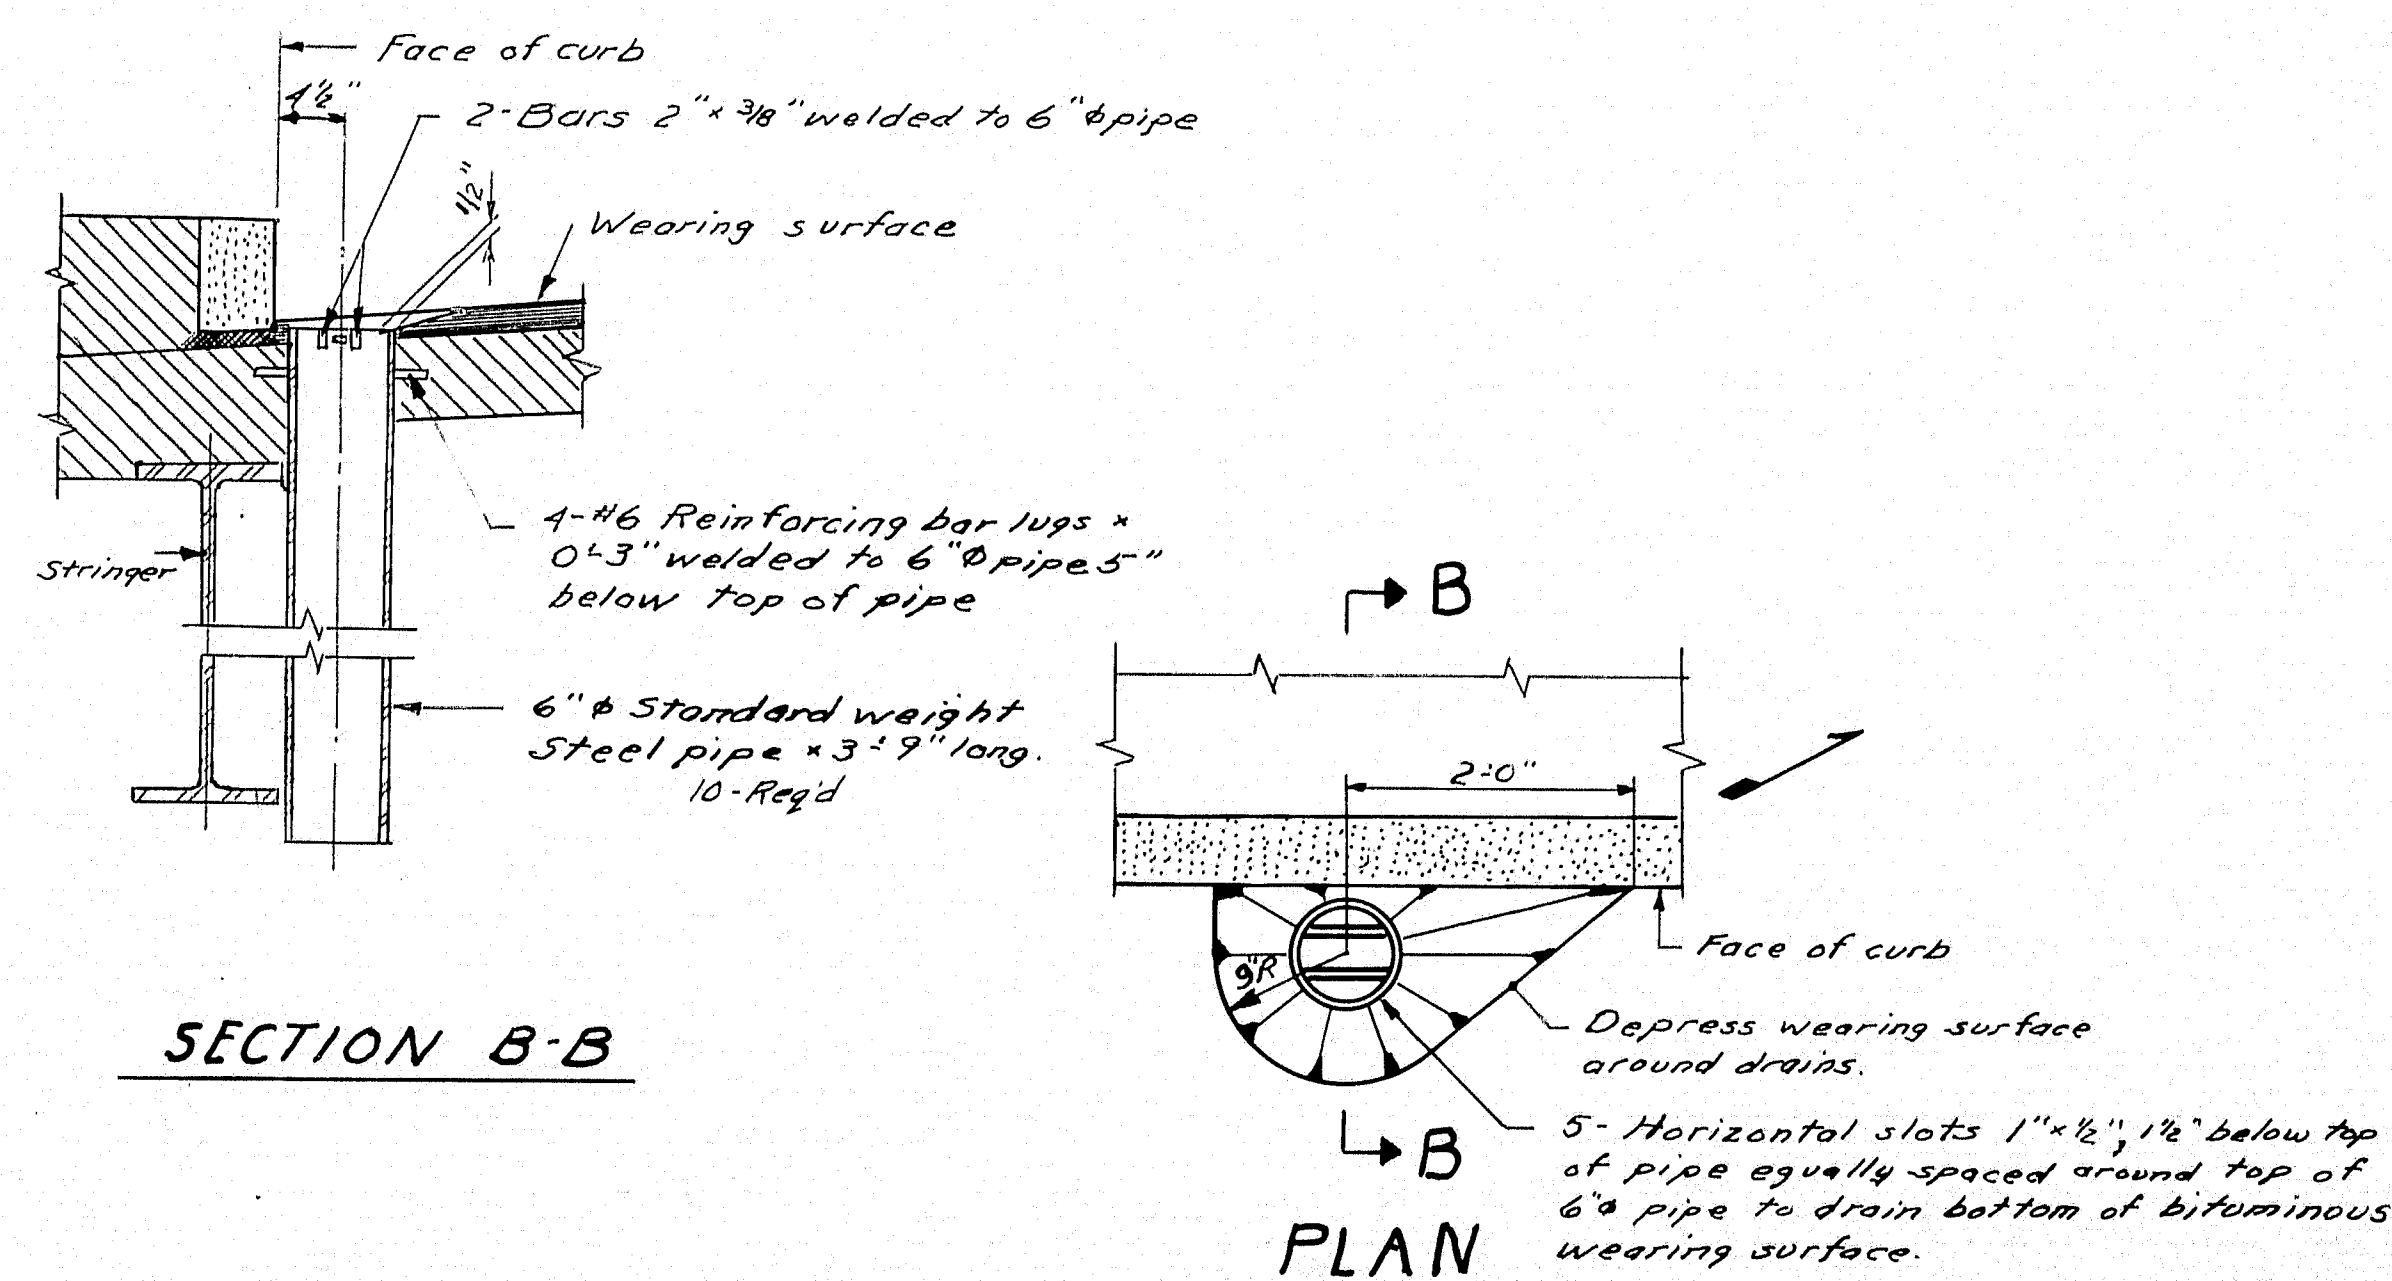 Face of curb
4½"
2-Bars 2"x 3/8" welded to 6"ϕ pipe
1/2"
Wearing surface
4-#6 Reinforcing bar lugs x
0'-3" welded to 6"ϕ pipe 5"
below top of pipe
Stringer
6"ϕ Standard weight
Steel pipe x 3'-9" long.
10-Req'd
SECTION B-B
B
2'-0"
9"R
Face of curb
Depress wearing surface
around drains.
5- Horizontal slots 1"x½", 1½" below top
of pipe equally spaced around top of
6"ϕ pipe to drain bottom of bituminous
wearing surface.
B
PLAN